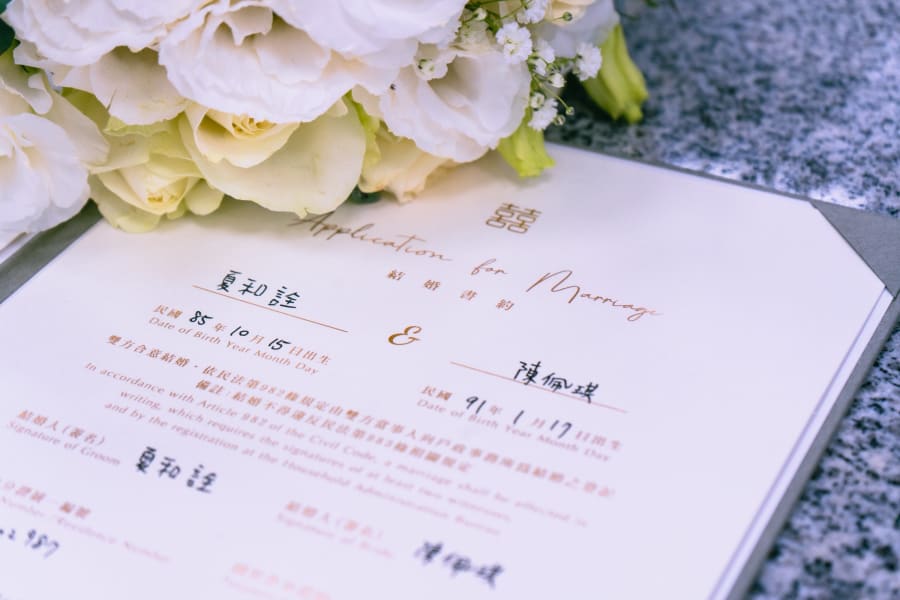 囍
Application for Marriage
結婚書約
夏和詮
&
陳佩琪
民國 85 年 10 月 15 日出生
Date of Birth Year Month Day
民國 91 年 1 月 17 日出生
Date of Birth Year Month Day
雙方合意結婚，依民法第982條規定由雙方當事人向戶政事務所為結婚之登記
備註：結婚不得違反民法第983條相關規定
In accordance with Article 982 of the Civil Code, a marriage shall be effected in
writing, which requires the signatures of at least two witnesses,
and by the registration at the Household Administration Bureau.
結婚人(簽名)
Signature of Groom
夏和詮
結婚人(簽名)
Signature of Bride
陳佩琪
987